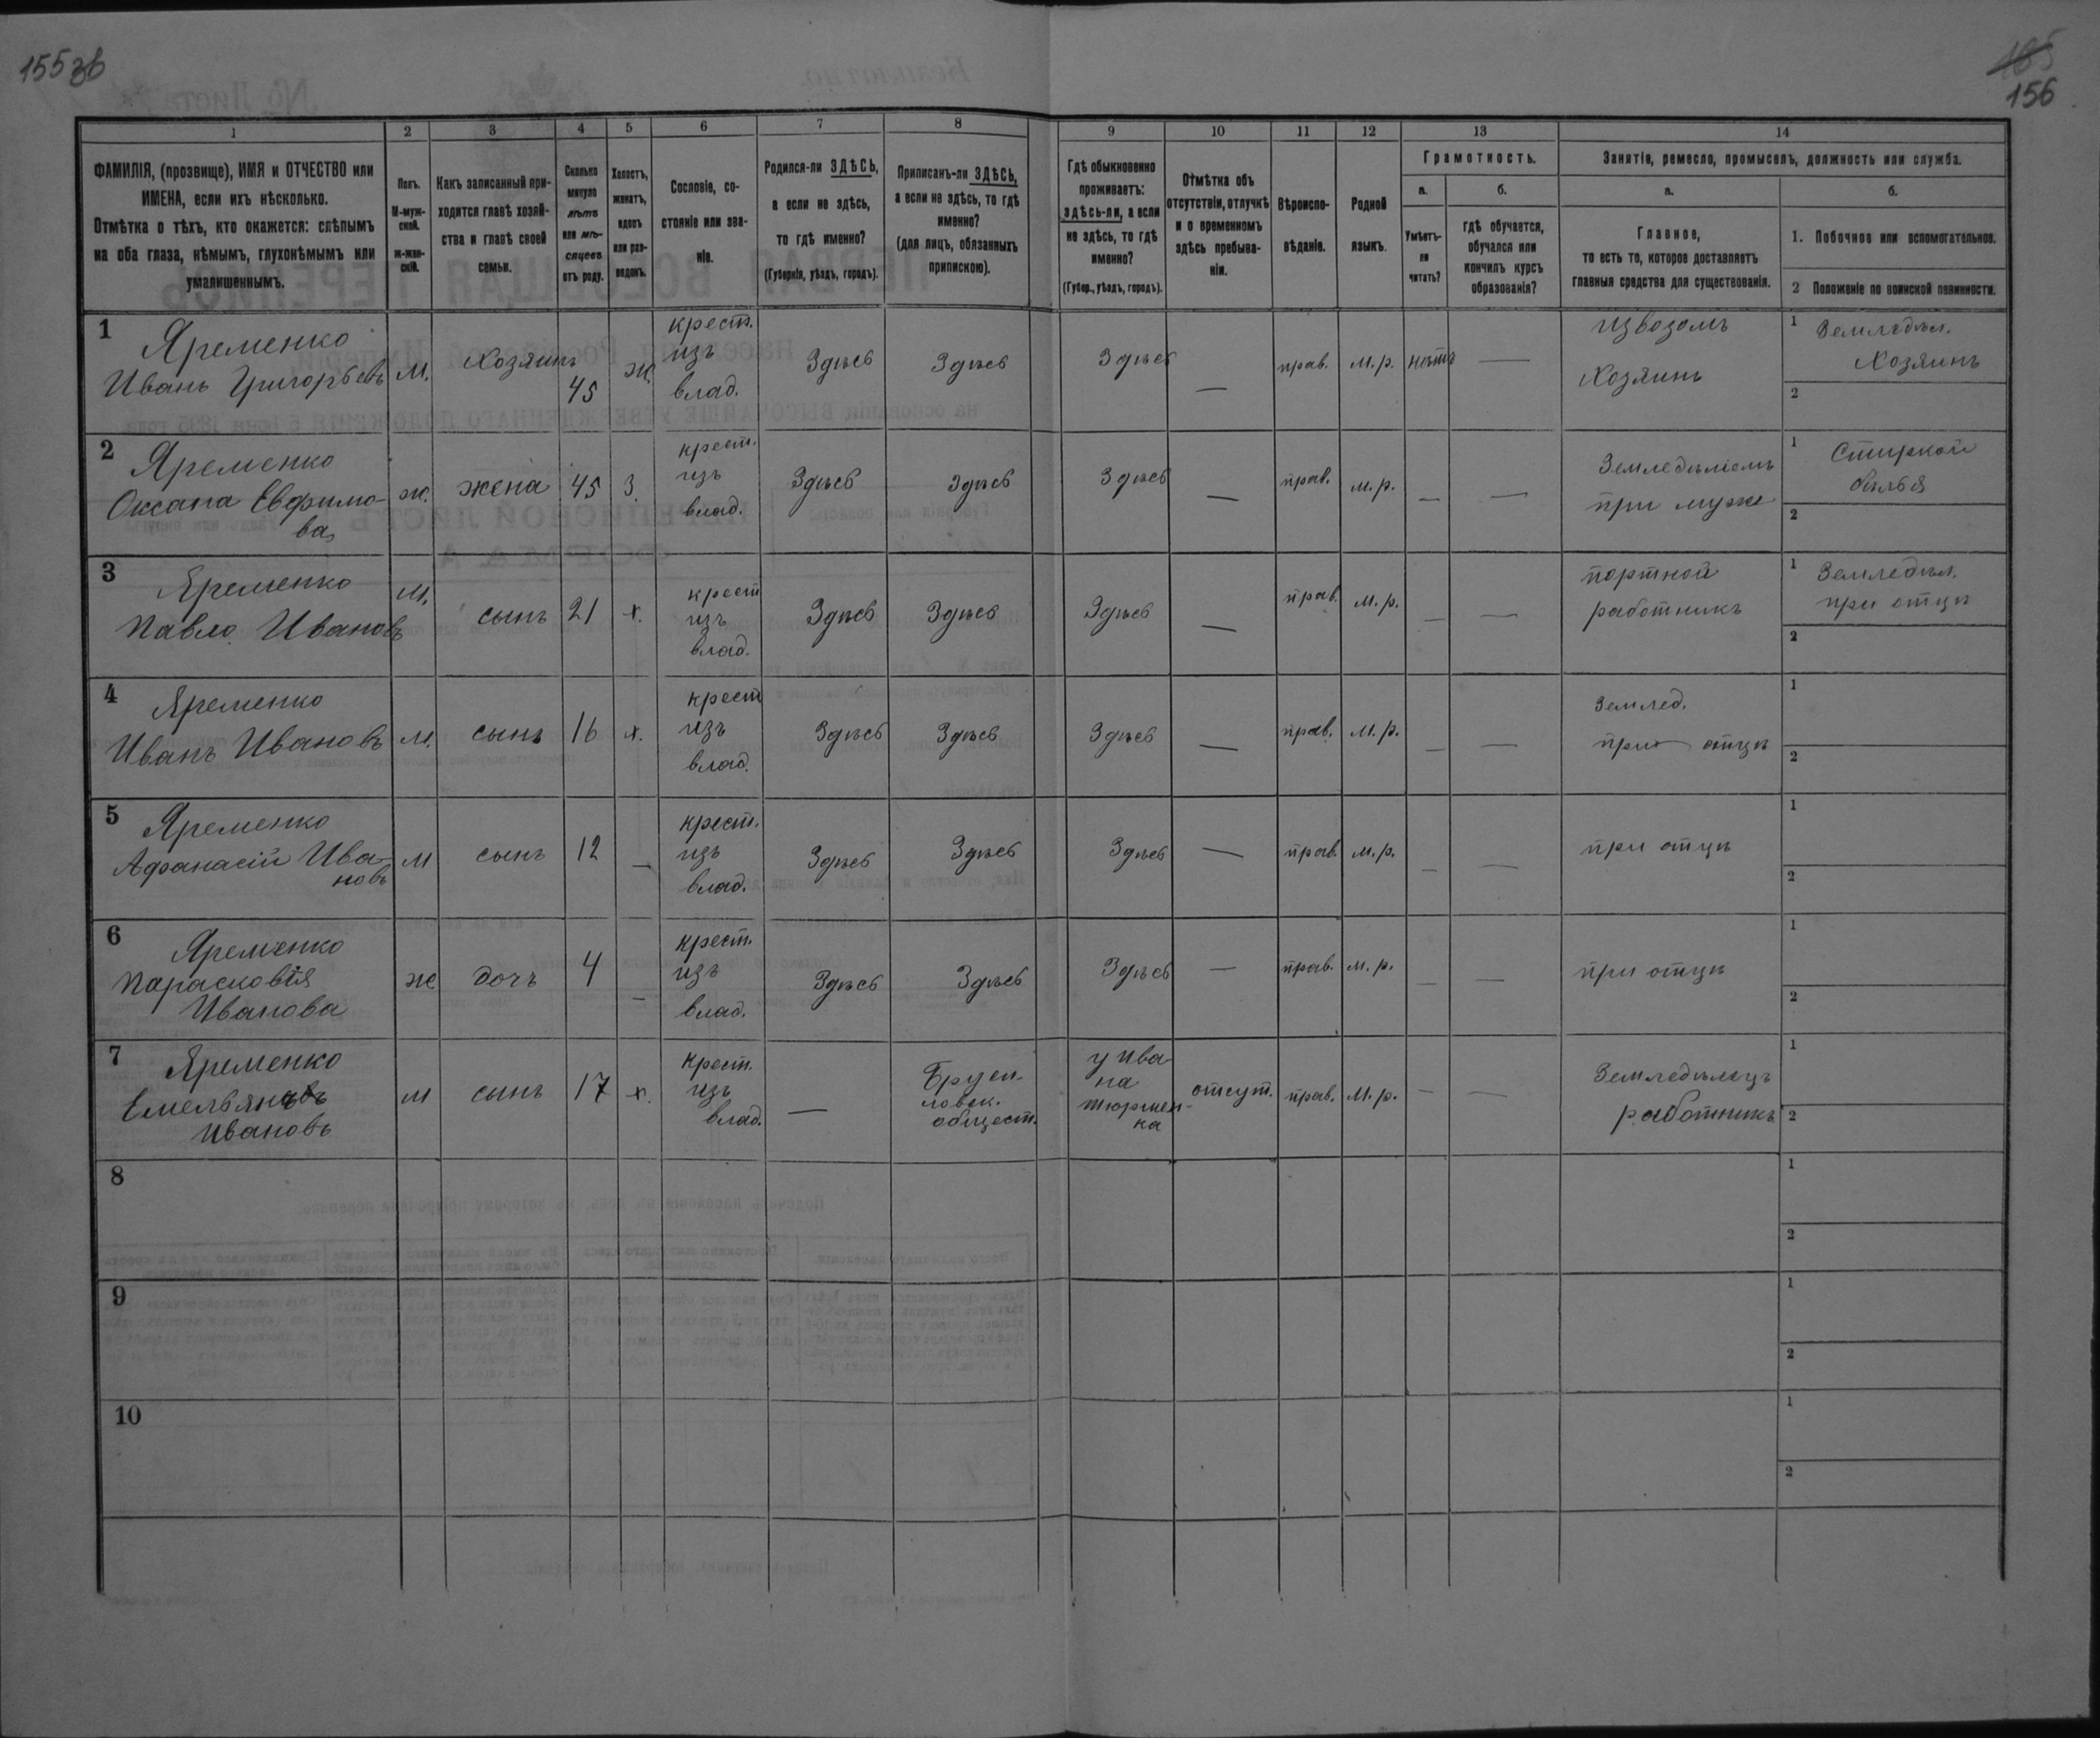 155 зв
165
156
1
2
3
4
5
6
7
8
9
10
11
12
13
14
ФАМИЛІЯ, (прозвище), ИМЯ и ОТЧЕСТВО или
ИМЕНА, если ихъ нѣсколько.
Отмѣтка о тѣхъ, кто окажется: слѣпымъ
на оба глаза, нѣмымъ, глухонѣмымъ или
умалишеннымъ.
Полъ.
М-муж-
ской.
ж-жен-
скій.
Какъ записанный при-
ходится главѣ хозяй-
ства и главѣ своей
семьи.
Сколько
минуло
лѣтъ
или мѣ-
сяцевъ
отъ роду.
Холостъ,
женатъ,
вдовъ
или раз-
веденъ.
Сословіе, со-
стояніе или зва-
ніе.
Родился-ли ЗДѢСЬ,
а если не здѣсь,
то гдѣ именно?
(Губернія, уѣздъ, городъ).
Приписанъ-ли ЗДѢСЬ,
а если не здѣсь, то гдѣ
именно?
(для лицъ, обязанныхъ
припискою).
Гдѣ обыкновенно
проживаетъ:
здѣсь-ли, а если
не здѣсь, то гдѣ
именно?
(Губер., уѣздъ, городъ).
Отмѣтка объ
отсутствіи, отлучкѣ
и о временномъ
здѣсь пребыва-
ніи.
Вѣроиспо-
вѣданіе.
Родной
языкъ.
Грамотность.
а.
б.
Умѣетъ-
ли
читать?
гдѣ обучается,
обучался или
кончилъ курсъ
образованія?
Занятіе, ремесло, промыселъ, должность или служба.
а.
б.
Главное,
то есть то, которое доставляетъ
главныя средства для существованія.
1. Побочное или вспомогательное.
2 Положеніе по воинской повинности.
1
Яременко
Иванъ Григорьевъ
м.
Хозяинъ
45
ж.
крест.
изъ
влад.
Здѣсь
Здѣсь
Здѣсь
—
прав.
м.р.
нѣтъ
—
извозомъ
Хозяинъ
1
Земледѣл.
Хозяинъ
2
2
Яременко
Оксана Евфимо-
ва
ж.
жена
45
З.
крест.
изъ
влад.
Здѣсь
Здѣсь
Здѣсь
—
прав.
м.р.
—
—
Земледѣліемъ
при муже
1
Стиркой
бѣлья
2
3
Яременко
Павло Ивановъ
М.
сынъ
21
х.
крест
изъ
влад.
Здѣсь
Здѣсь
Здѣсь
—
прав.
м.р.
—
—
портной
работникъ
1
Земледѣл.
при отцѣ
2
4
Яременко
Иванъ Ивановъ
м.
сынъ
16
х.
крест
изъ
влад.
Здѣсь
Здѣсь
Здѣсь
—
прав.
м.р.
—
—
Землед.
при отцѣ
1
2
5
Яременко
Афанасій Ива-
новъ
м
сынъ
12
—
крест.
изъ
влад.
Здѣсь
Здѣсь
Здѣсь
—
прав.
м.р.
—
—
при отцѣ
1
2
6
Яременко
Парасковія
Иванова
ж
дочь
4
—
крест.
изъ
влад.
Здѣсь
Здѣсь
Здѣсь
—
прав.
м.р.
—
—
при отцѣ
1
2
7
Яременко
Емельянъ
Ивановъ
м
сынъ
17
х.
крест.
изъ
влад.
—
общест.
у Ива-
на
отсут.
прав.
м.р.
—
—
Земледѣлецъ
работникъ
1
2
8
1
2
9
1
2
10
1
2